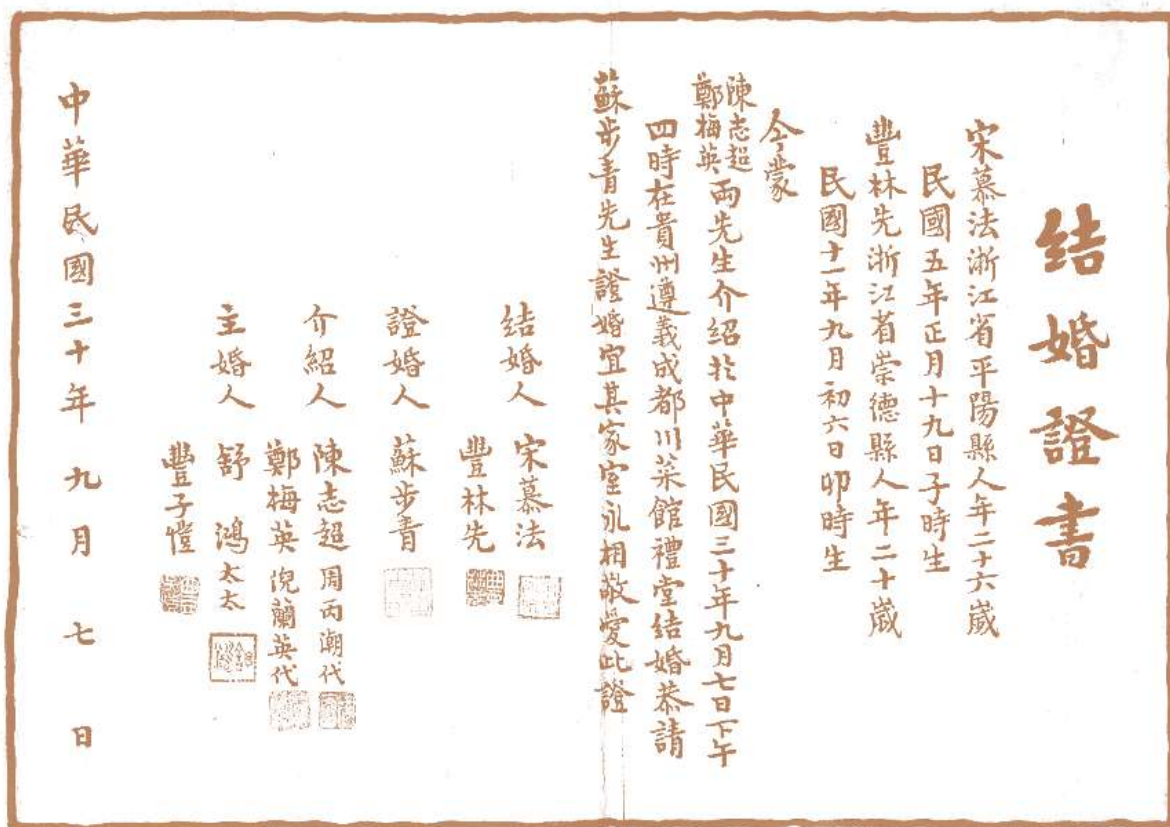 结婚證書
宋慕法浙江省平陽縣人年二十六歲
民國五年正月十九日子時生
豐林先浙江省崇德縣人年二十歲
民國十一年九月初六日卯時生
今蒙
陳志超
鄭梅英
兩先生介绍於中華民國三十年九月七日下午
四時在貴州遵義成都川菜館禮堂结婚恭請
蘇步青先生證婚宜其家室永相敬愛此證
结婚人 宋慕法
豐林先
證婚人 蘇步青
介紹人 陳志超 周丙潮代
鄭梅英 倪蘭英代
主婚人 舒鴻太太
豐子愷
中華民國三十年九月七日